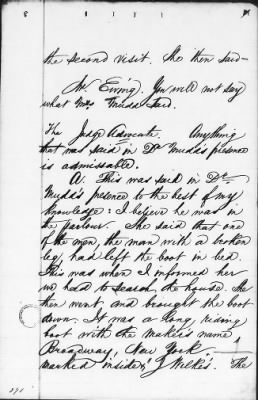 8
the second visit. She then said—
Mr. Ewing. You will not say
what Mrs Mudd said.
The Judge Advocate. Anything
that was said in Dr Mudd's presence
is admissable.
A. This was said in Dr
Mudd's presence to the best of my
knowledge: I believe he was in
the parlour. She said that one
of the men, the man with a broken
leg, had left the boot in bed.
This was when I informed her
we had to search the house. She
then went and brought the boot
down. It was a long riding
boot with the maker's name
Broadway, New York
marked inside; J Wilkes. The